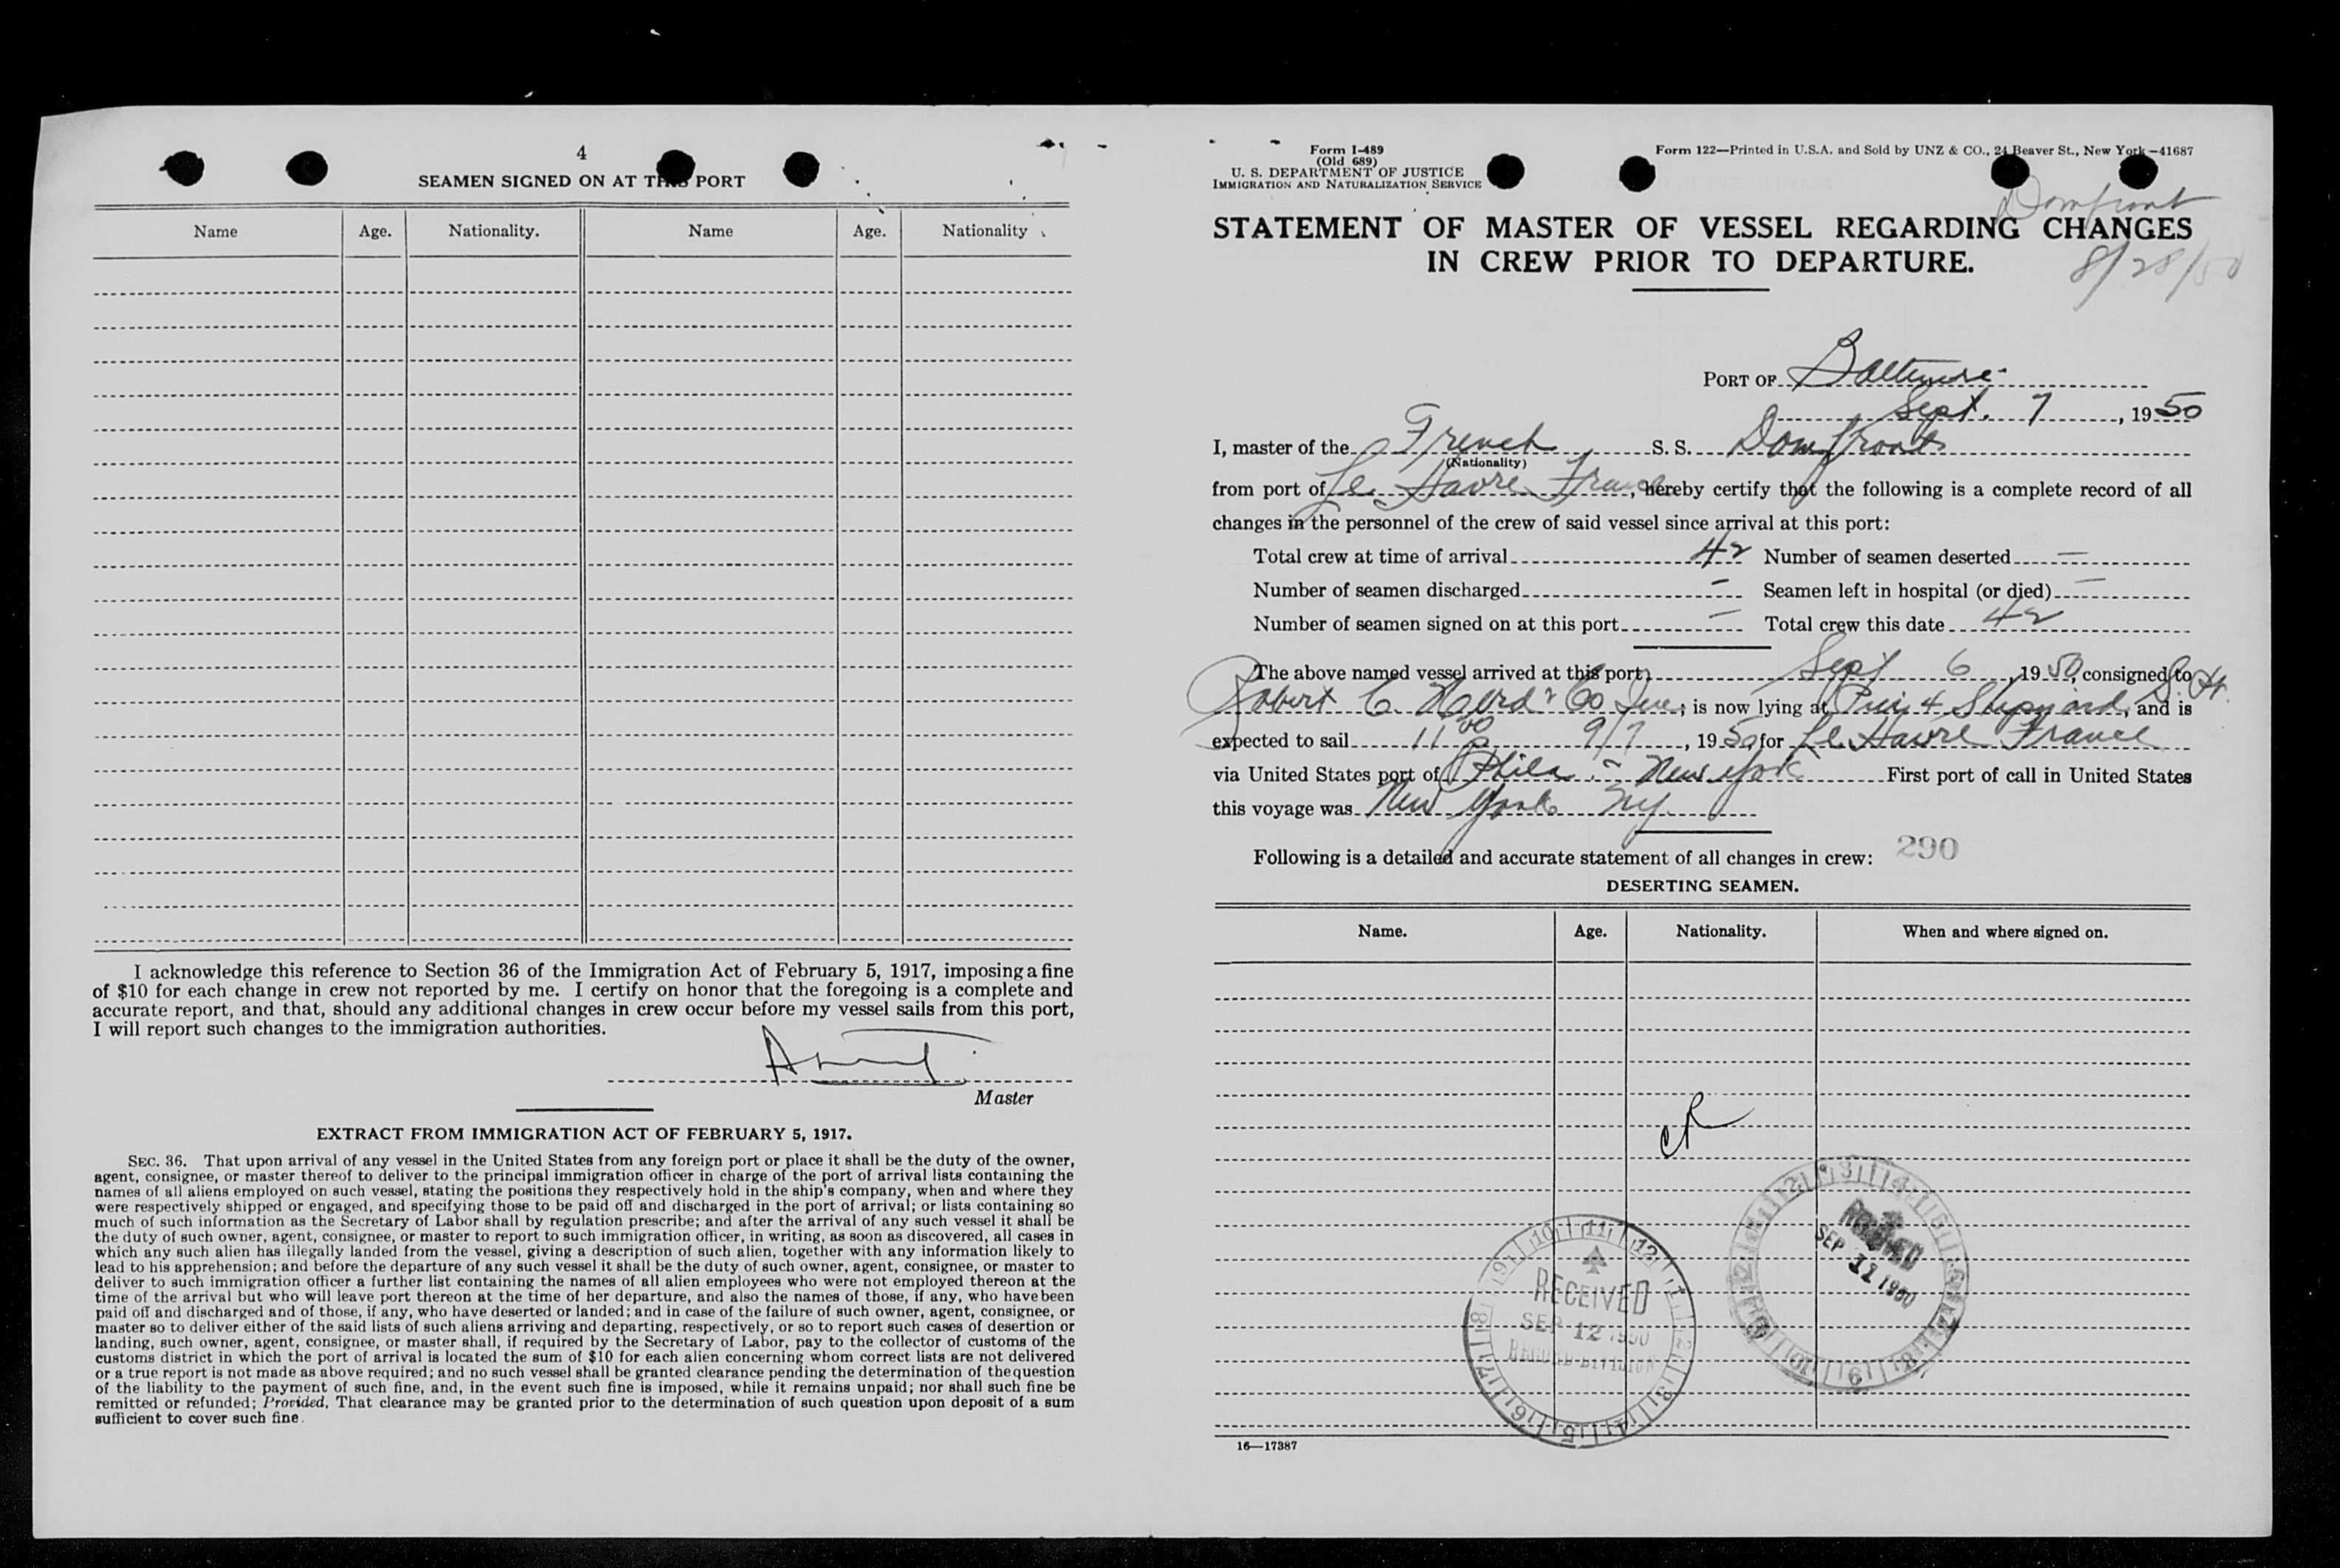 4
SEAMEN SIGNED ON AT THIS PORT
Name Age. Nationality. Name Age. Nationality
I acknowledge this reference to Section 36 of the Immigration Act of February 5, 1917, imposing a fine
of $10 for each change in crew not reported by me. I certify on honor that the foregoing is a complete and
accurate report, and that, should any additional changes in crew occur before my vessel sails from this port,
I will report such changes to the immigration authorities.
Master
EXTRACT FROM IMMIGRATION ACT OF FEBRUARY 5, 1917.
SEC. 36. That upon arrival of any vessel in the United States from any foreign port or place it shall be the duty of the owner,
agent, consignee, or master thereof to deliver to the principal immigration officer in charge of the port of arrival lists containing the
names of all aliens employed on such vessel, stating the positions they respectively hold in the ship's company, when and where they
were respectively shipped or engaged, and specifying those to be paid off and discharged in the port of arrival; or lists containing so
much of such information as the Secretary of Labor shall by regulation prescribe; and after the arrival of any such vessel it shall be
the duty of such owner, agent, consignee, or master to report to such immigration officer, in writing, as soon as discovered, all cases in
which any such alien has illegally landed from the vessel, giving a description of such alien, together with any information likely to
lead to his apprehension; and before the departure of any such vessel it shall be the duty of such owner, agent, consignee, or master to
deliver to such immigration officer a further list containing the names of all alien employees who were not employed thereon at the
time of the arrival but who will leave port thereon at the time of her departure, and also the names of those, if any, who have been
paid off and discharged and of those, if any, who have deserted or landed; and in case of the failure of such owner, agent, consignee, or
master so to deliver either of the said lists of such aliens arriving and departing, respectively, or so to report such cases of desertion or
landing, such owner, agent, consignee, or master shall, if required by the Secretary of Labor, pay to the collector of customs of the
customs district in which the port of arrival is located the sum of $10 for each alien concerning whom correct lists are not delivered
or a true report is not made as above required; and no such vessel shall be granted clearance pending the determination of the question
of the liability to the payment of such fine, and, in the event such fine is imposed, while it remains unpaid; nor shall such fine be
remitted or refunded; Provided, That clearance may be granted prior to the determination of such question upon deposit of a sum
sufficient to cover such fine.
Form I-489
(Old 689)
U. S. DEPARTMENT OF JUSTICE
IMMIGRATION AND NATURALIZATION SERVICE
Form 122—Printed in U.S.A. and Sold by UNZ & CO., 24 Beaver St., New York—41687
Domfront
STATEMENT OF MASTER OF VESSEL REGARDING CHANGES
IN CREW PRIOR TO DEPARTURE.
8/28/50
PORT OF Baltimore
Sept. 7, 1950
I, master of the French S. S. Domfront
(Nationality)
from port of Le Havre France, hereby certify that the following is a complete record of all
changes in the personnel of the crew of said vessel since arrival at this port:
Total crew at time of arrival 42 Number of seamen deserted —
Number of seamen discharged — Seamen left in hospital (or died) —
Number of seamen signed on at this port — Total crew this date 42
The above named vessel arrived at this port Sept 6, 1950, consigned to
Robert C. Herd & Co Inc; is now lying at Pier 4 Shipyard, and is
expected to sail 11 00 P 9/7, 1950, for Le Havre France
via United States port of Phila. - New York First port of call in United States
this voyage was New York NY.
Following is a detailed and accurate statement of all changes in crew: 290
DESERTING SEAMEN.
Name. Age. Nationality. When and where signed on.
RECEIVED
SEP 12 1950
RECEIVED
SEP 11 1950
16—17387